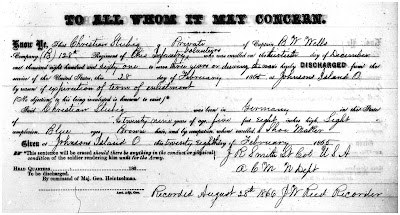 TO ALL WHOM IT MAY CONCERN.
Know Ye, That Christian Stubig Private of Captain B W Wells
Company (B) 128th Regiment of Ohio Infantry Volunteers who was enrolled on the thirtieth day of December
one thousand eight hundred and sixty to serve three years or during the war is hereby DISCHARGED from the
service of the United States, this 28 day of February 1865 at Johnsons Island O
by reason of expiration of term of enlistment
(No objection to his being reenlisted is known to exist.)
Said Christian Stubig was born in Germany in the State
of twenty nine years of age, five feet eight inches high Light
complexion Blue eyes Brown hair, and by occupation, when enrolled, a Shoe Maker
Given at Johnsons Island O this twenty eighth day of February 1865
This sentence will be erased should there be anything in the conduct or physical
condition of the soldier rendering him unfit for the Army.
J R Smith Lt Col. U.S.A
A C M N Dept
HEAD QUARTERS 186
To be discharged,
By command of Maj. Gen. Heintzelman.
Asst. Adj. Gen.
Recorded August 25th 1866 J W Reed Recorder